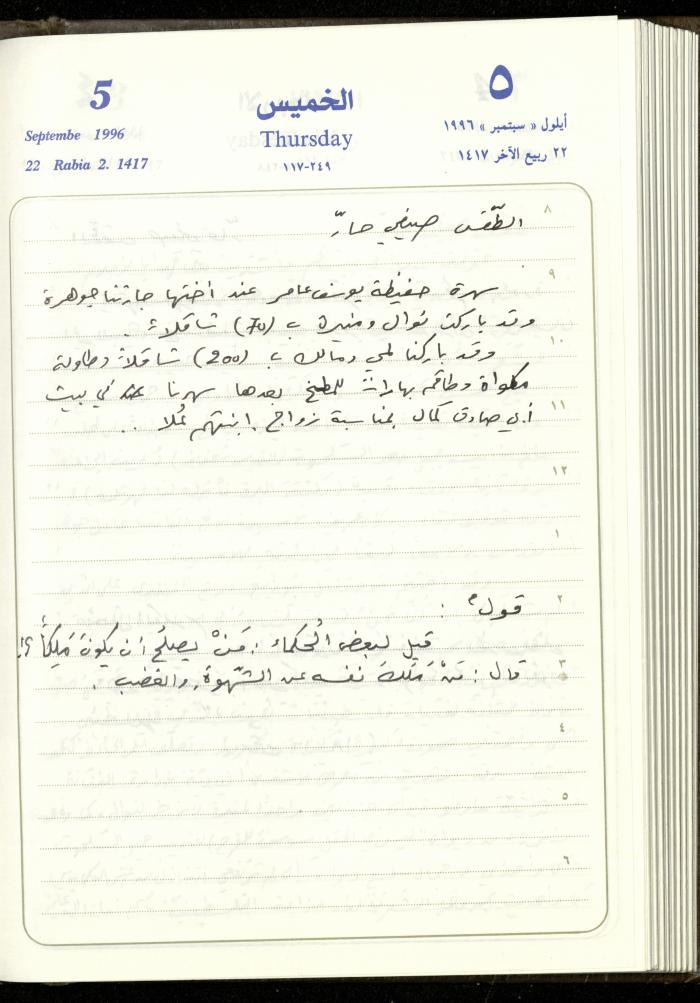 5
الخميس
٥
Septembe 1996
Thursday
أيلول « سبتمبر » ١٩٩٦
22 Rabia 2. 1417
٢٤٩-١١٧
٢٢ ربيع الآخر ١٤١٧
٨
الطّقس صيفي حارّ
٩
سهرة حفيظة يوسف عامر عند أختها جارتنا جوهرة
وقد باركت نوال ومنيرة بـ (70) شاقلاً .
١٠
وقد باركنا لمي ومالك بـ (200) شاقلاً وطاولة
مكواة وطاقم بهارات للمطبخ بعدها سهرنا في بيت
١١
أبي صادق كمال بمناسبة زواج ابنتهم عُلا ..
١٢
١
٢
قول :
قيل لبعض الحُكماء : مَنْ يصلحُ أن يكونَ مَلِكاً ؟!
٣
قال : مَنْ مَلَكَ نفسه عن الشّهوة والغضب .
٤
٥
٦